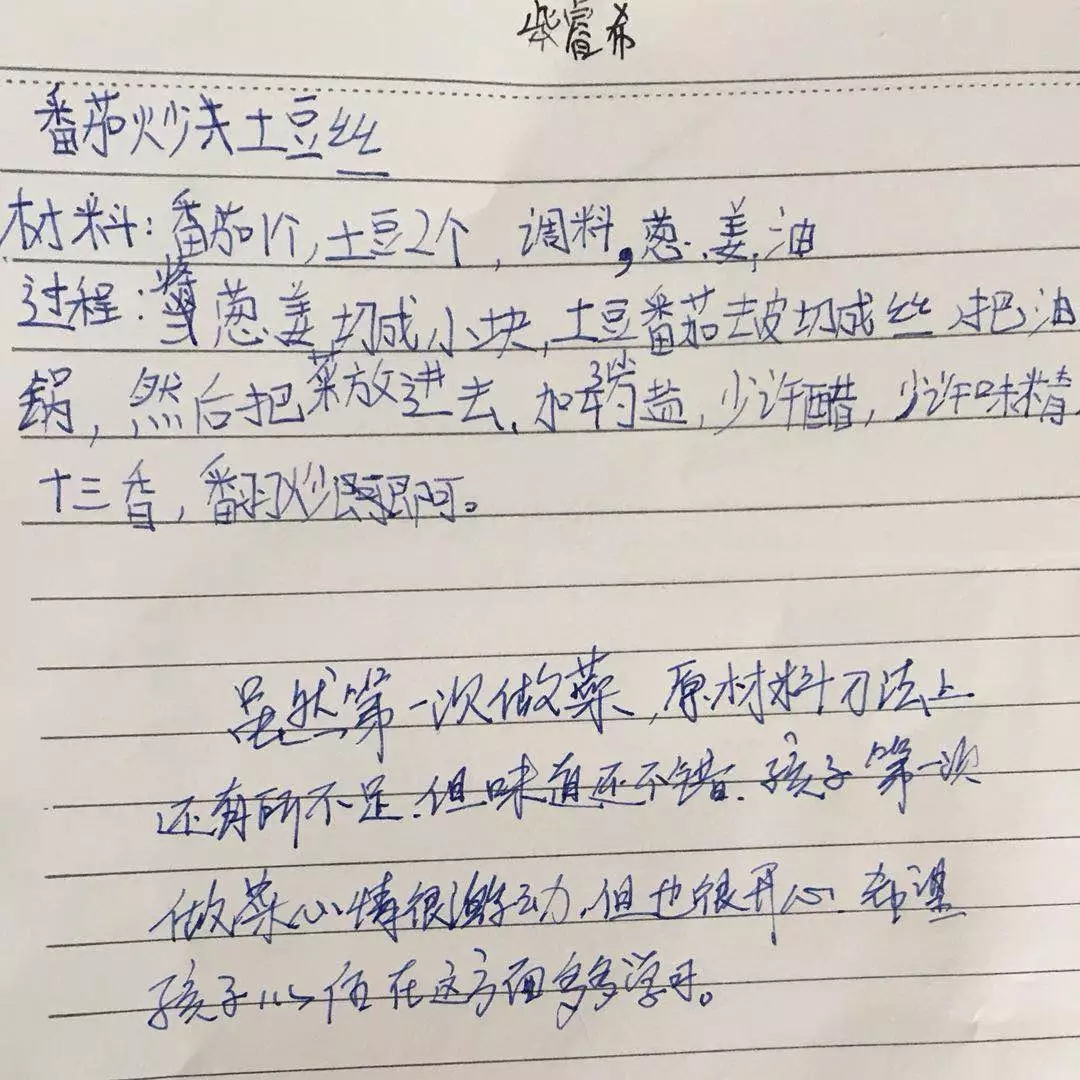 柴睿希
番茄炒土豆丝
材料:番茄1个,土豆2个,调料,葱.姜,油
过程:将葱姜切成小块,土豆番茄去皮切成丝,把油
锅,然后把菜放进去,加3小勺盐,少许醋,少许味精
十三香,翻炒即可。
虽然第一次做菜,原材料刀法上
还有所不足.但味道还不错.孩子第一次
做菜心情很激动,但也很开心.希望
孩子以后在这方面多多学习。